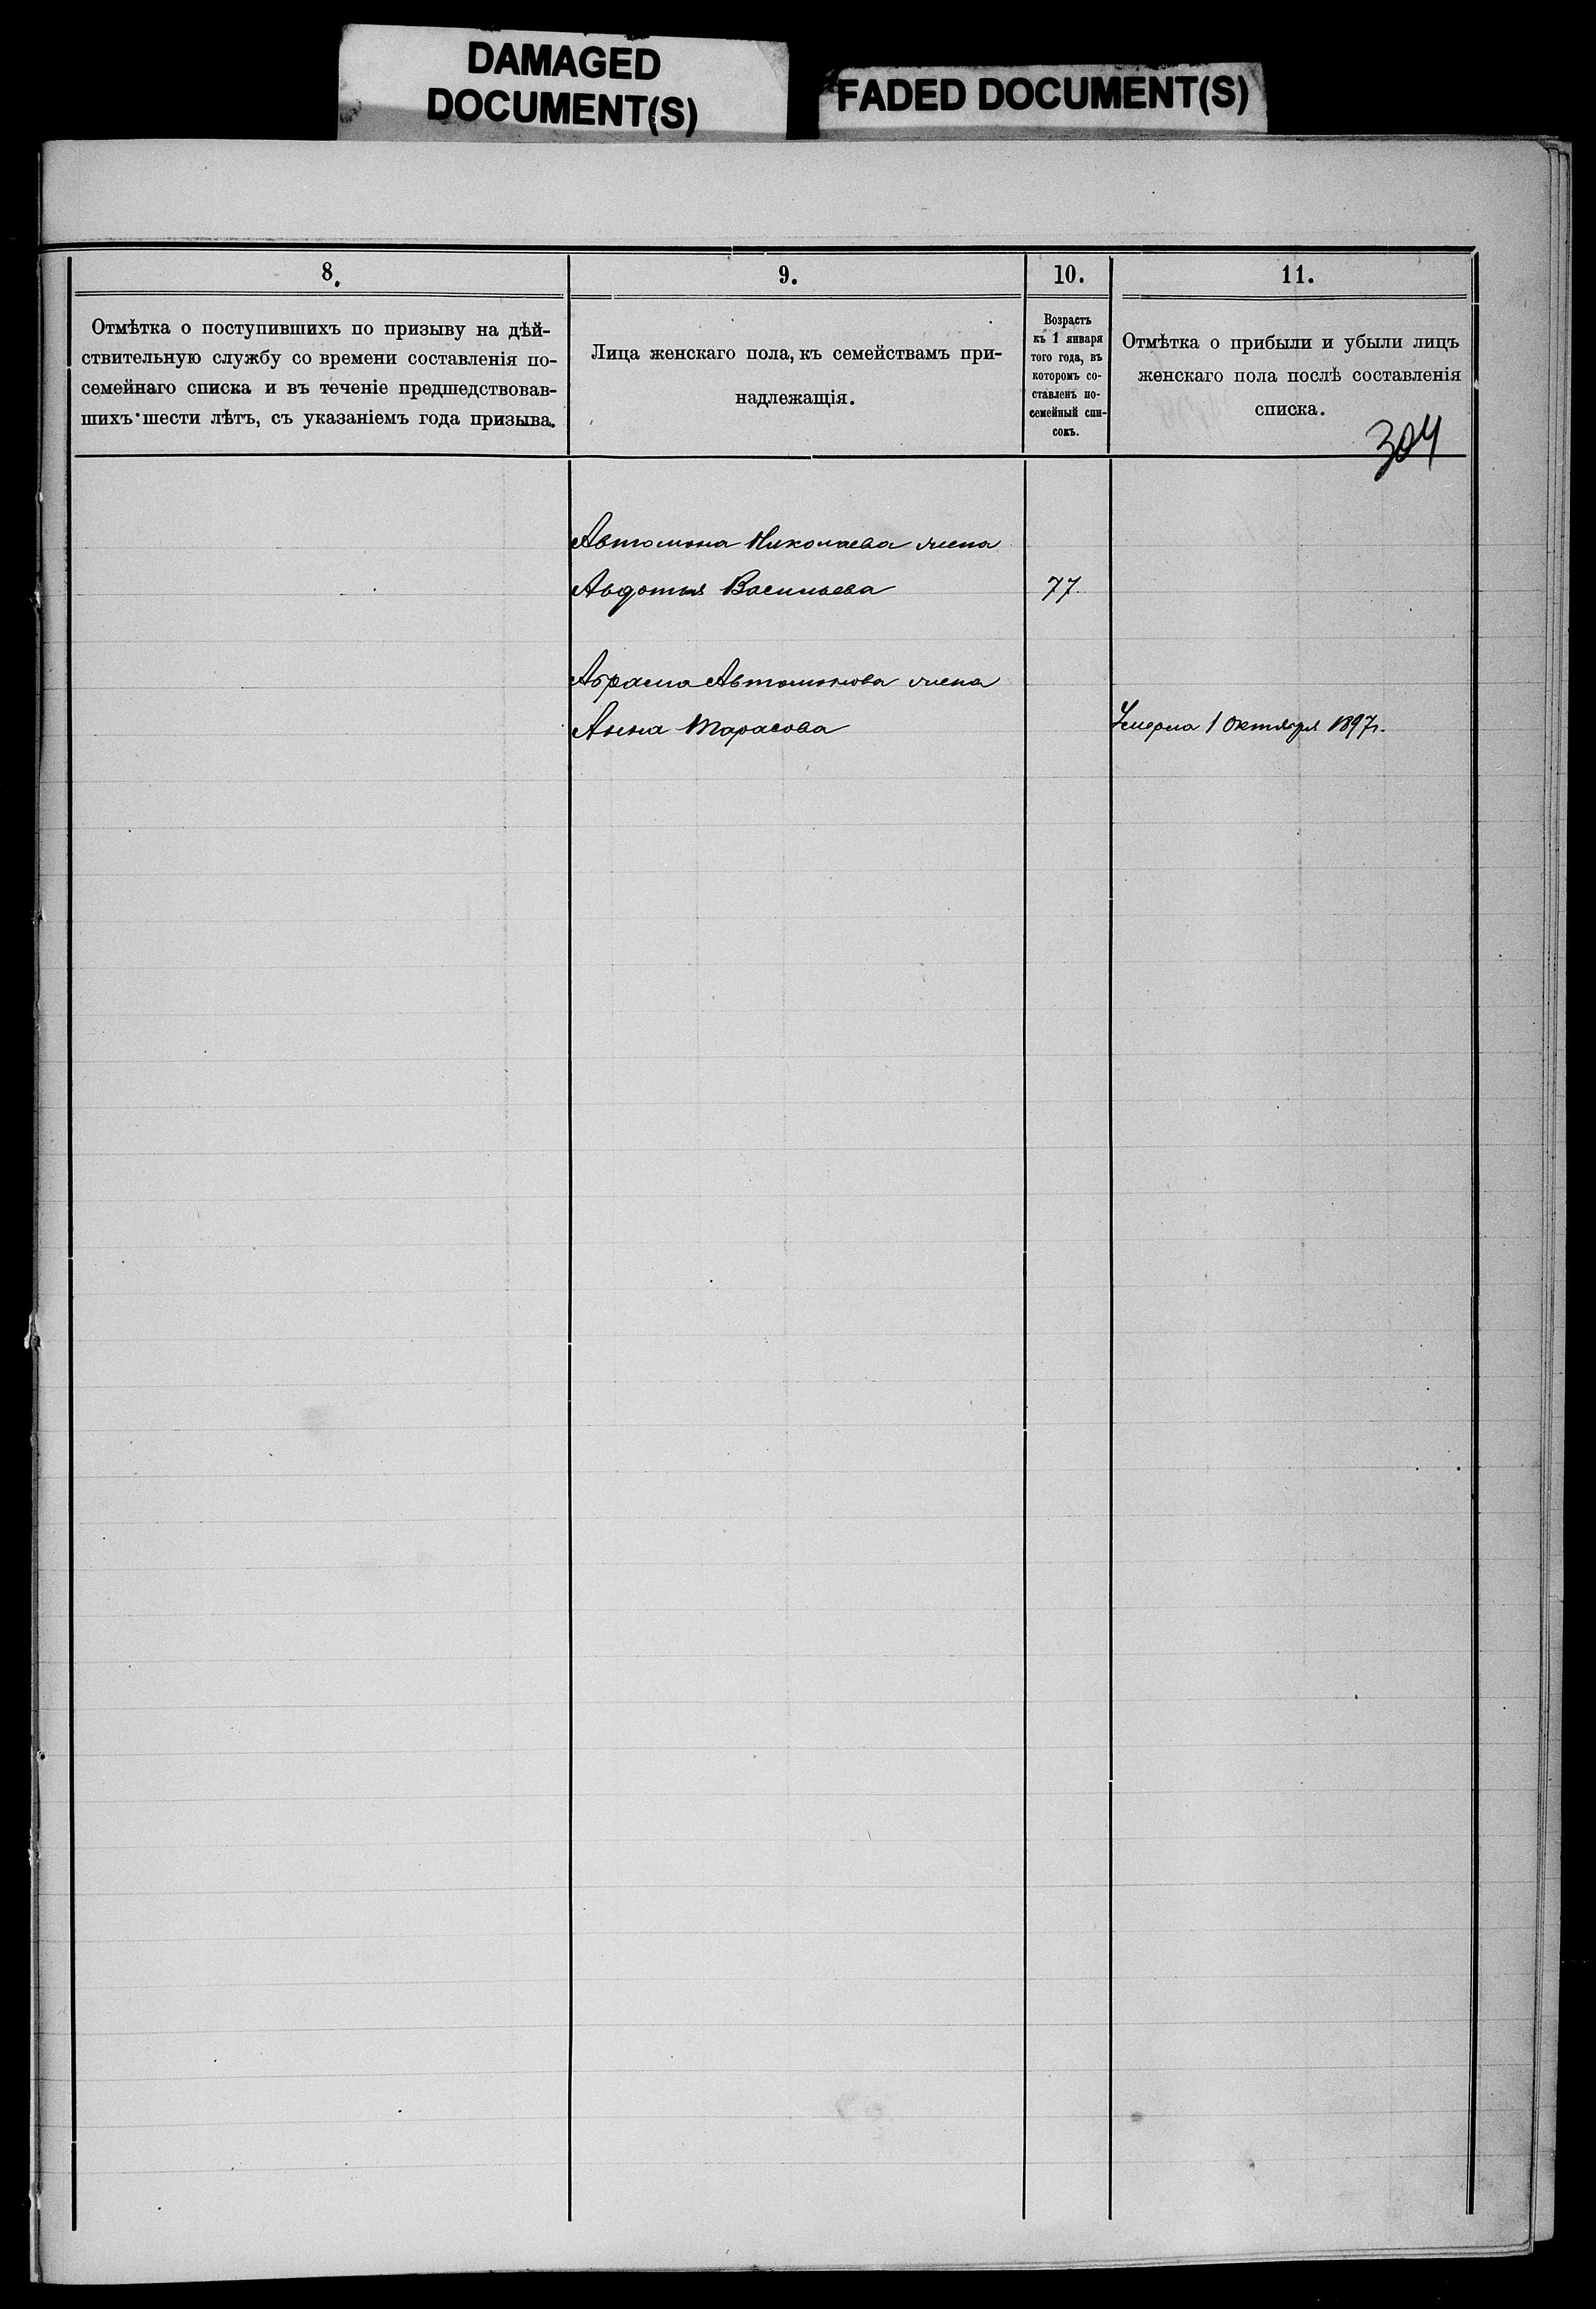 DAMAGED
DOCUMENT(S)
FADED DOCUMENT(S)
8.
9.
10.
11.
Отмѣтка о поступившихъ по призыву на дѣй-
ствительную службу со времени составленія по-
семейнаго списка и въ теченіе предшедствовав-
шихъ шести лѣтъ, съ указаніемъ года призыва.
Лица женскаго пола, къ семействамъ при-
надлежащія.
Возрастъ
къ 1 января
того года, въ
которомъ со-
ставленъ по-
семейный спи-
сокъ.
Отмѣтка о прибыли и убыли лицъ
женскаго пола послѣ составленія
списка.
304
Автомона Николаева жена
Авдотья Васильева 77.
Абрама Автомонова жена
Анна Тарасова Умерла 1 Октября 1897г.